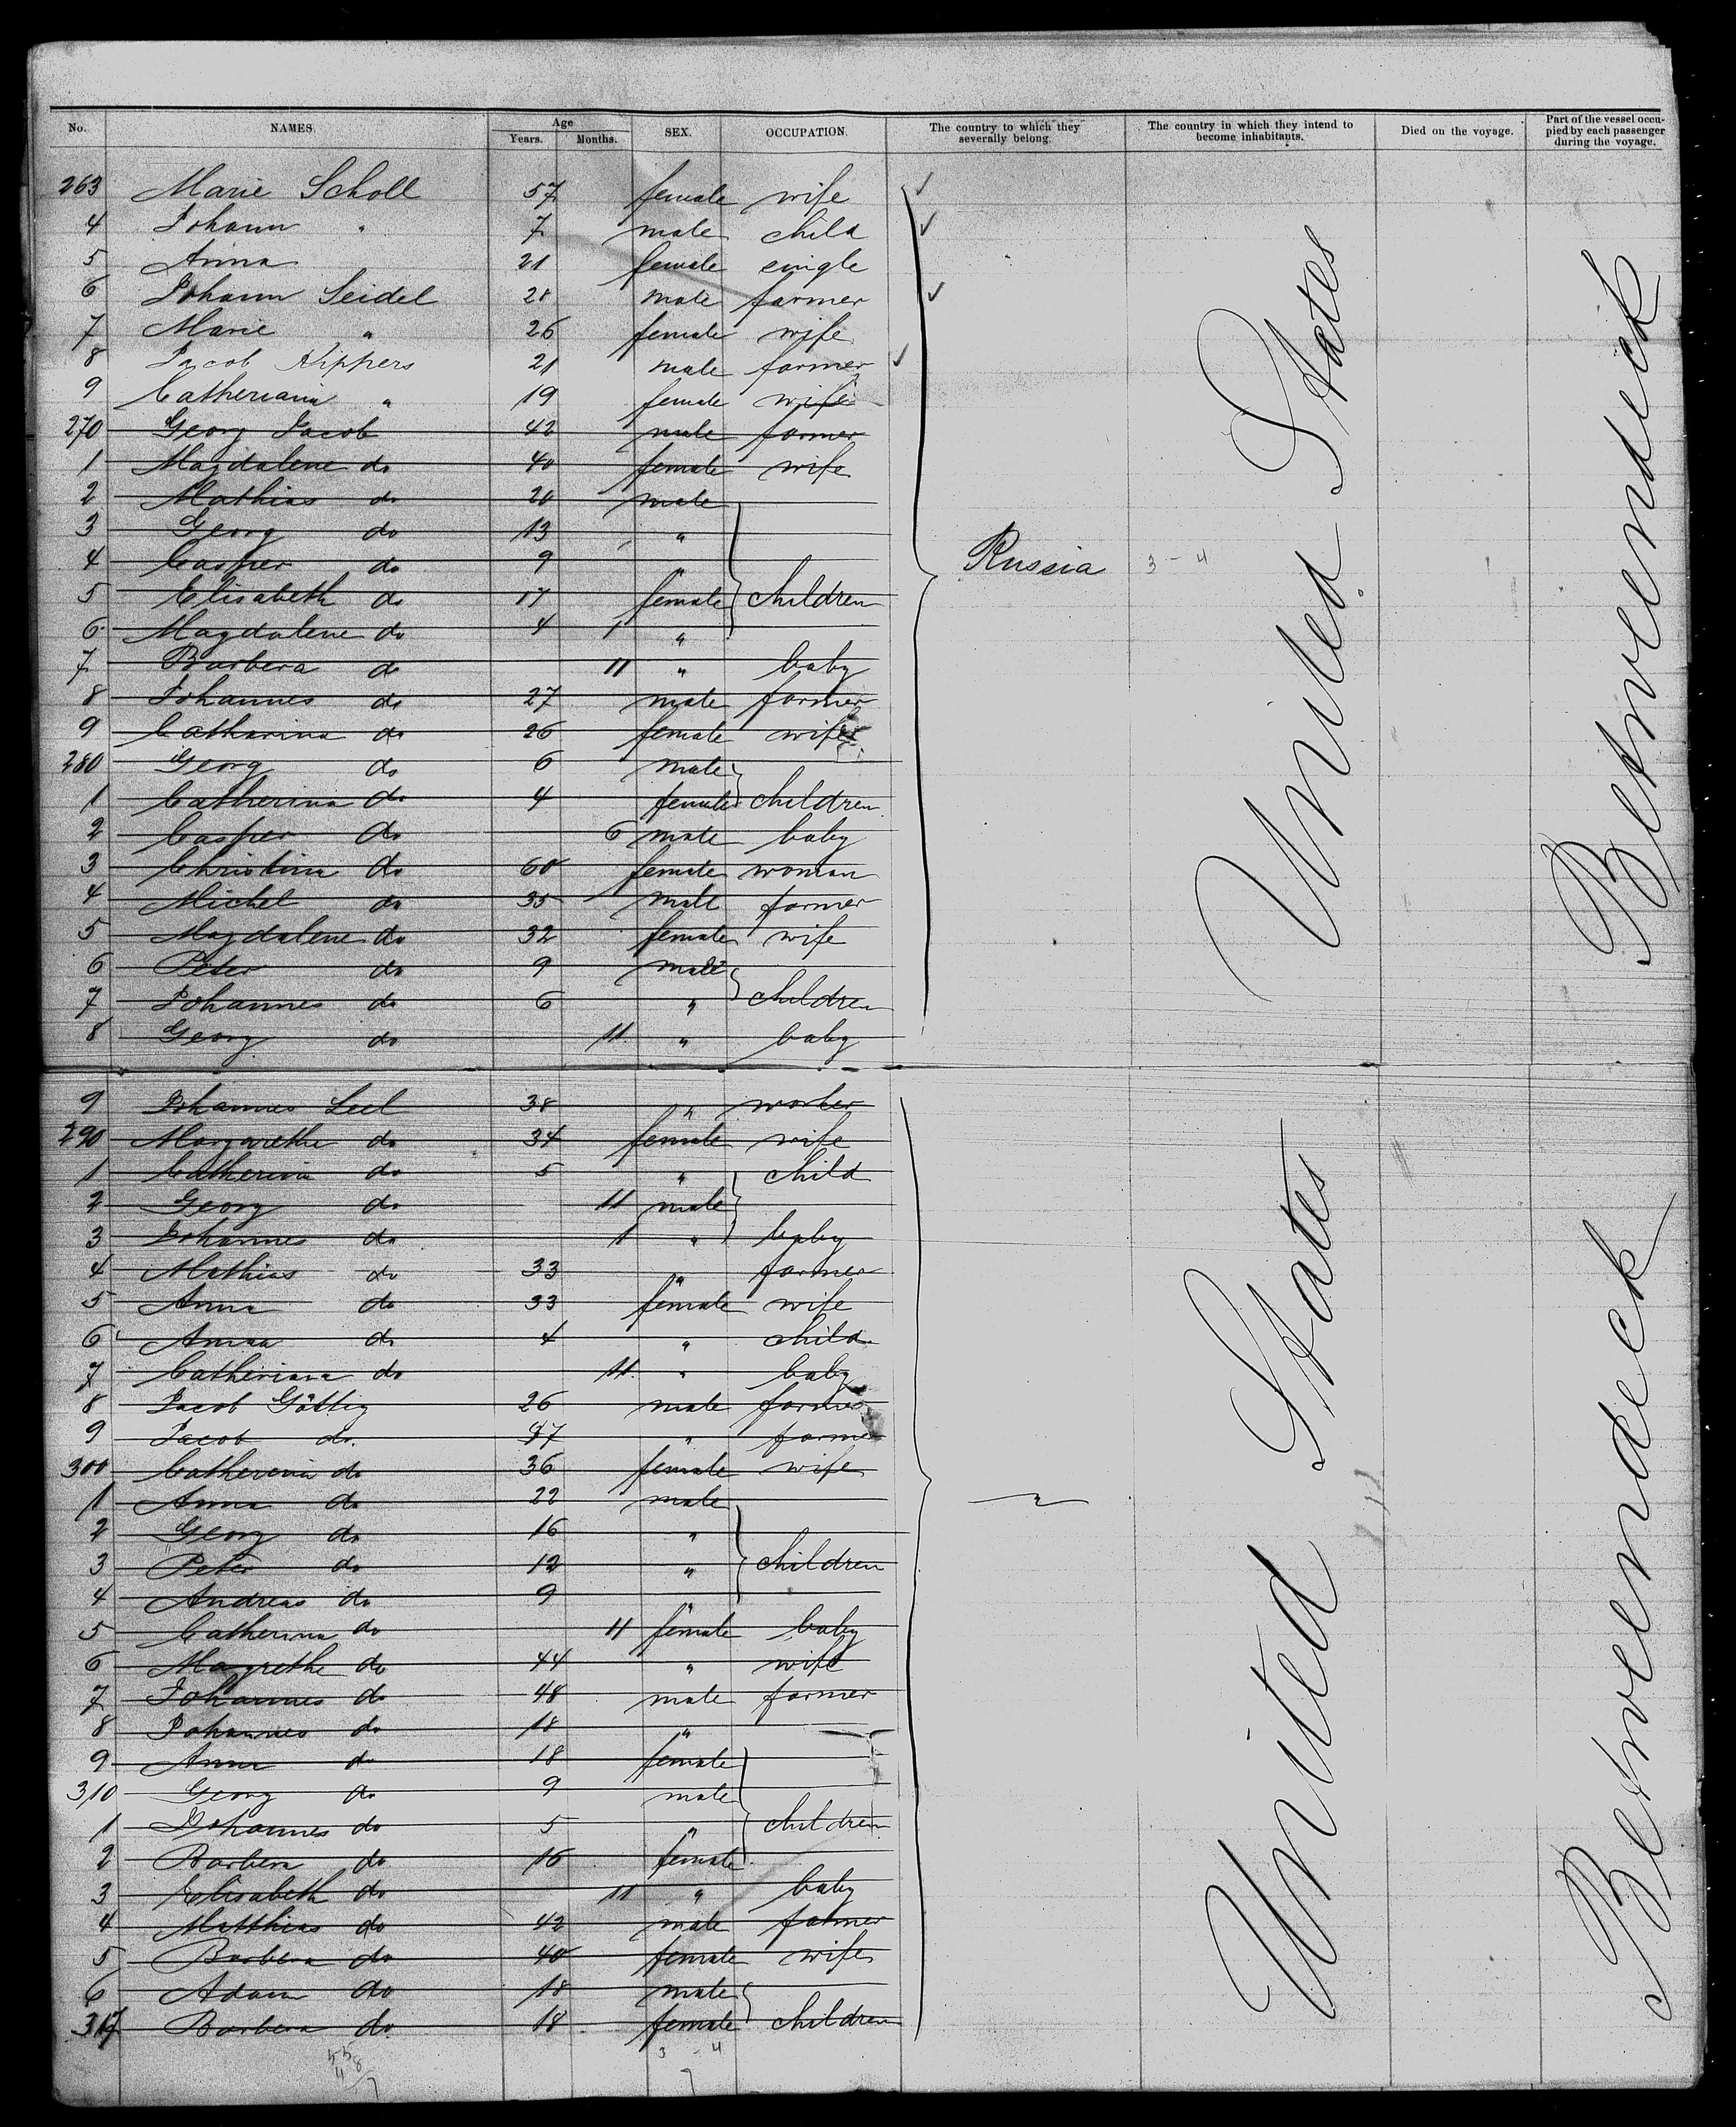 No. NAMES. Age Years. Months. SEX. OCCUPATION. The country to which they severally belong. The country in which they intend to become inhabitants. Died on the voyage. Part of the vessel occupied by each passenger during the voyage.
263 Marie Scholl 57 female wife
4 Johann " 7 male child
5 Anna 21 female single
6 Johann Seidel 28 male farmer
7 Marie " 26 female wife
8 Jacob Kippers 21 male farmer
9 Catherina " 19 female wife
270 Georg Jacob 42 male farmer
1 Magdalene do 40 female wife
2 Mathias do 20 male
3 Georg do 13 "
4 Casper do 9 "
5 Elisabeth do 17 female children
6 Magdalene do 4 1 "
7 Barbera do 11 " baby
8 Johannes do 27 male farmer
9 Catharina do 26 female wife
280 Georg do 6 male
1 Catherina do 4 female children
2 Casper do 6 male baby
3 Christina do 60 female woman
4 Michel do 35 male farmer
5 Magdalene do 32 female wife
6 Peter do 9 male
7 Johannes do 6 " children
8 Georg do 11 " baby
Russia 3 - 4
United States
Betweendeck
9 Johannes Seel 38 " worker
290 Margarethe do 34 female wife
1 Catherina do 5 " child
2 Georg do 11 male
3 Johannes do 1 " baby
4 Mathias do 33 " farmer
5 Anna do 33 female wife
6 Anna do 4 " child
7 Catherina do 11 " baby
8 Jacob Göttig 26 male farmer
9 Jacob do. 37 " farmer
300 Catherina do 36 female wife
1 Anna do 22 male
2 Georg do 16 "
3 Peter do 12 " children
4 Andreas do 9 "
5 Catherina do 11 female baby
6 Magrethe do 44 " wife
7 Johannes do 48 male farmer
8 Johannes do 18 "
9 Anna do 18 female
310 Georg do 9 male
1 Johannes do 5 " children
2 Barbera do 16 female
3 Elisabeth do 11 " baby
4 Matthias do 42 male farmer
5 Barbera do 40 female wife
6 Adam do 18 male
317 Barbera do 18 female children
"
United States
Betweendeck
3 - 4